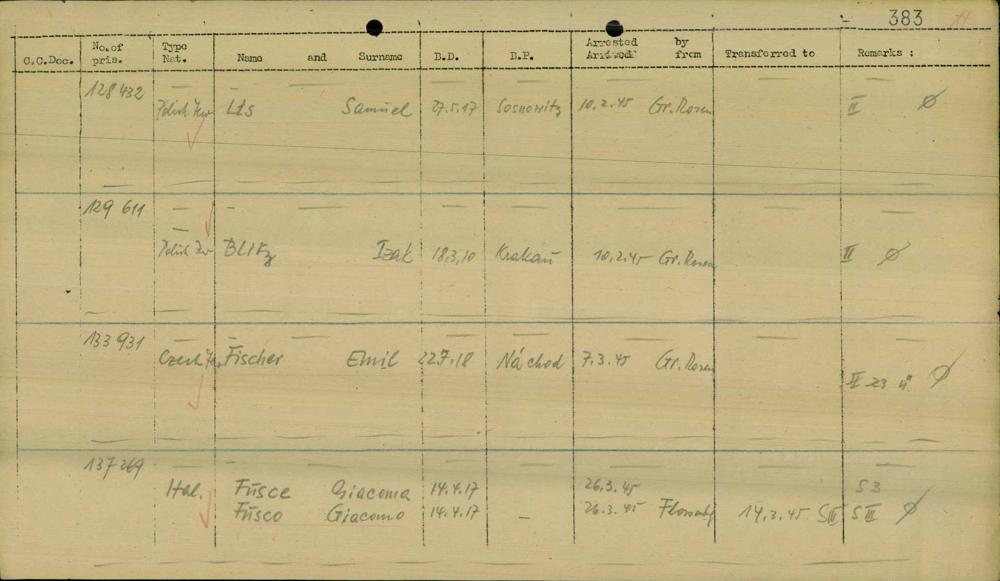 383
C.C.Doc. No.of pris. Type Nat. Name and Surname B.D. B.P. Arrested Arrived by from Transferred to Remarks :
128 432
Polish Jew Lts Samuel 27.5.17 Sosnowitz 10.2.45 Gr.Rosen II Ø
129 611
Polish Jew BLITz Izak 18.3.10 Krakau 10.2.45 Gr.Rosen II Ø
133 931
Czech Fischer Emil 22.7.18 Náchod 7.3.45 Gr.Rosen
II 23 Ø
137 269
Ital. Fusce Giacoma 14.4.17 26.3.45 S3
Fusco Giacomo 14.4.17 — 26.3.45 14.3.45 SIII SIII Ø